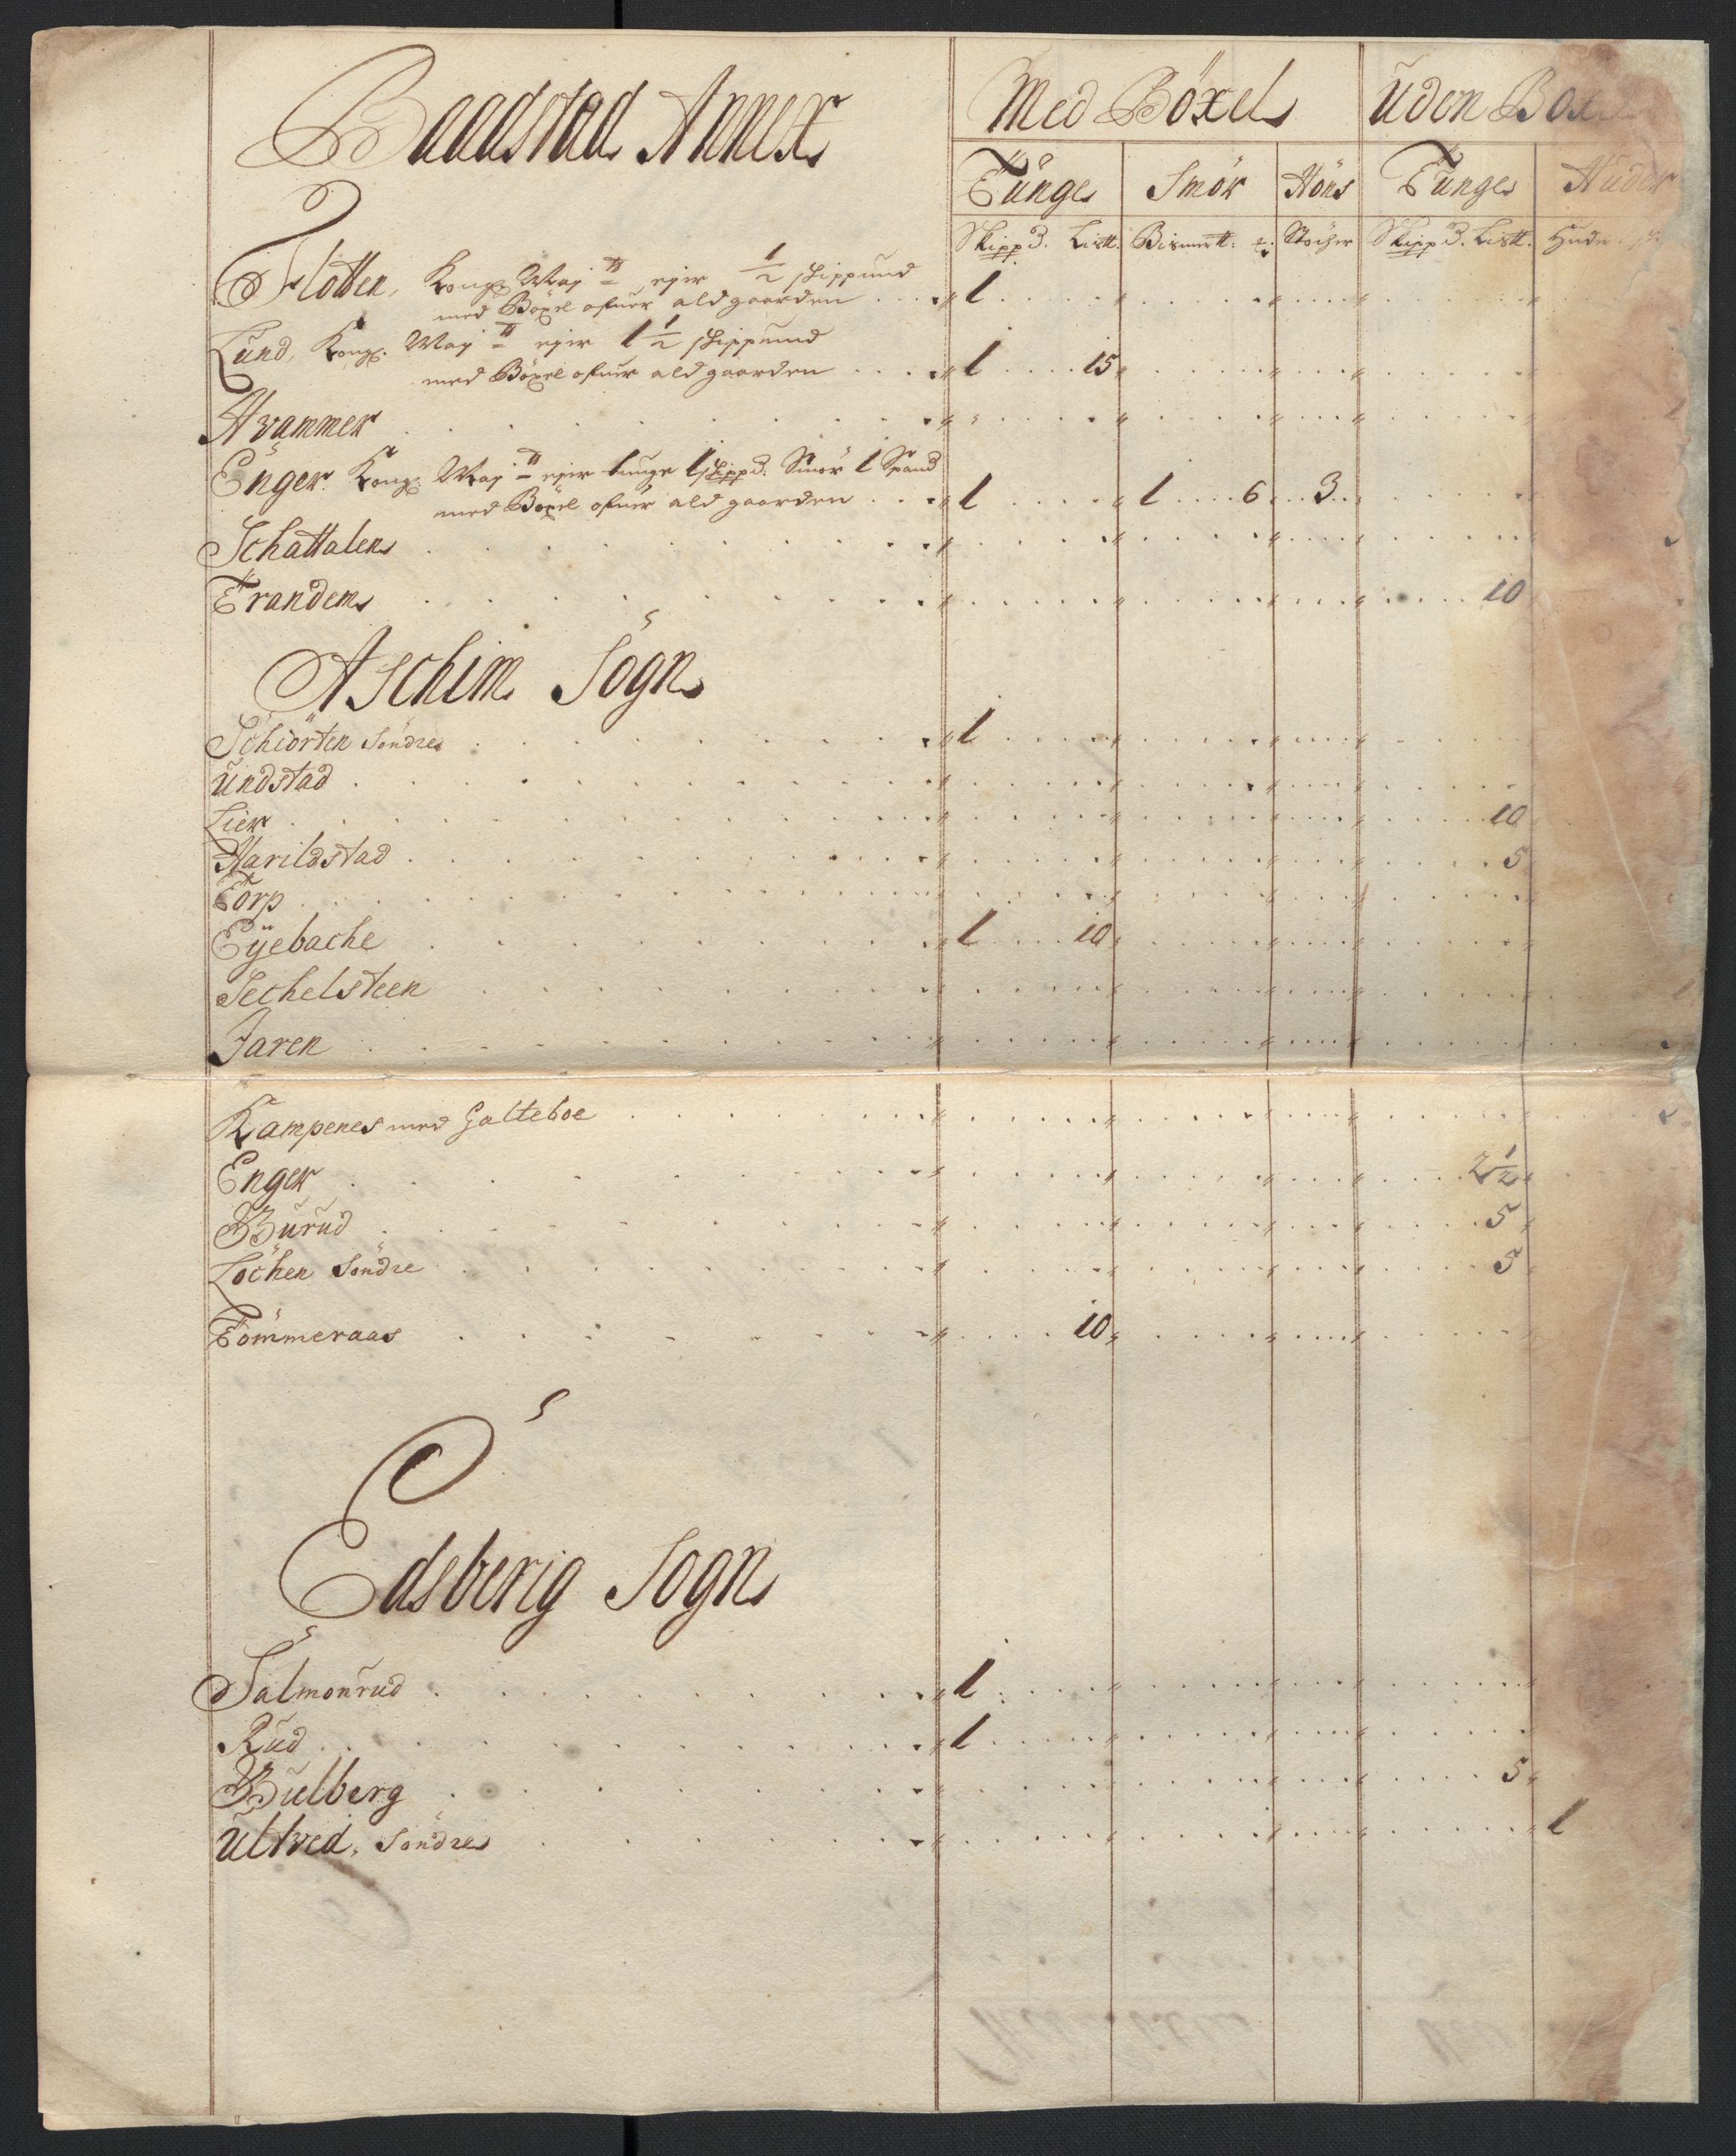 Baadstad Annex
Med Böxel
Uden Böxel
Tunge Smör Höns Tunge Huder
Skippd. Lis℔. Bismer℔. Stücher Skippd. Lis℔. Huder
Flotten, Kong: Maj:ts ejer 1/2 skippund
med Böxel ofuer ald gaarden 1
Lund, Kong: Maj:ts ejer 1 1/2 skippund
med Böxel ofuer ald gaarden 1 15
Hvammer
Enger. Kong: Maj:ts ejer tunge 1 skippd. Smör 1 Spand
med Böxel ofuer ald gaarden 1 1 6 3
Schattalen
Trandem 10
Aschim Sogn
Schiörten Söndre 1
Undstad
Lier 10
Harildstad 5
Torp
Eÿebache 1 10
Sechelsteen
Jaren
Kampenes med Galteboe
Enger 2 1/2
Burud 5
Löchen Söndre 5
Tömmeraas 10
Edsberig Sogn
Salmonrud 1
Rud 1
Bulberg 5
Ultved, Söndre 1